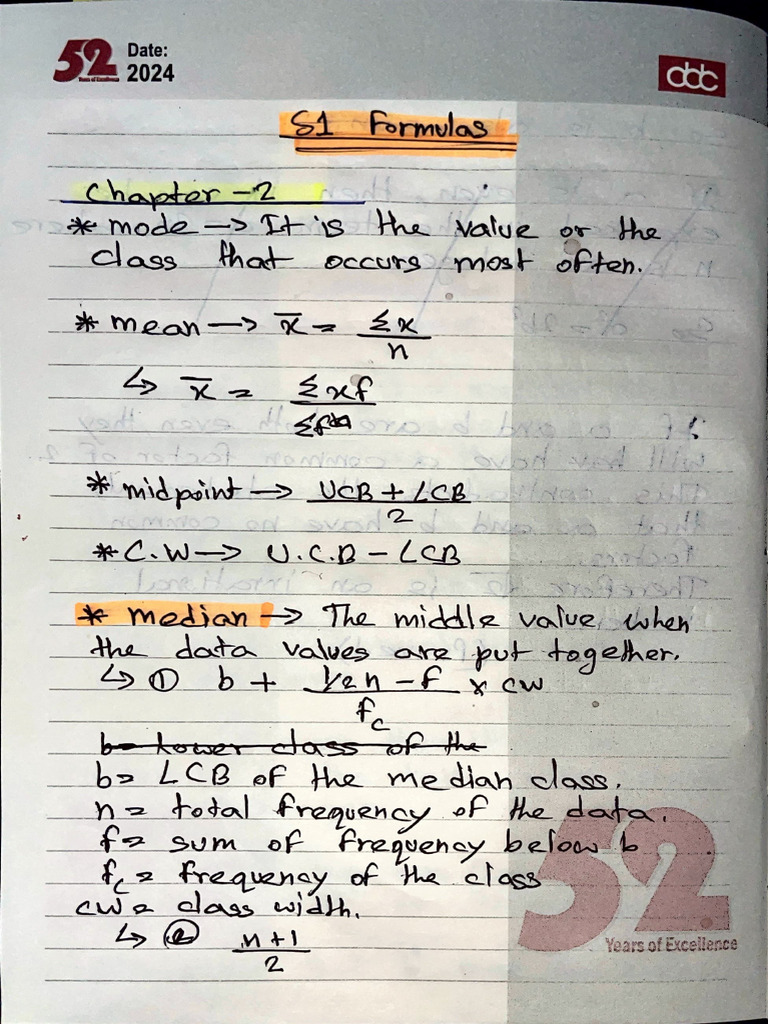 52 Date:
Years of Excellence 2024
dbc
S1 Formulas
Chapter -2
* mode → It is the value or the
class that occurs most often.
* mean → x̄ = Σx/n
↳ x̄ = Σxf/Σf
* midpoint → UCB + LCB/2
* C.W → U.C.B - LCB
* median → The middle value when
the data values are put together.
↳ ① b + (1/2n - f)/fc × cw
b = Lower class of the
b = LCB of the median class.
n = total frequency of the data.
f = sum of frequency below b
fc = frequency of the class
cw = class width.
↳ ② n+1/2
52
Years of Excellence